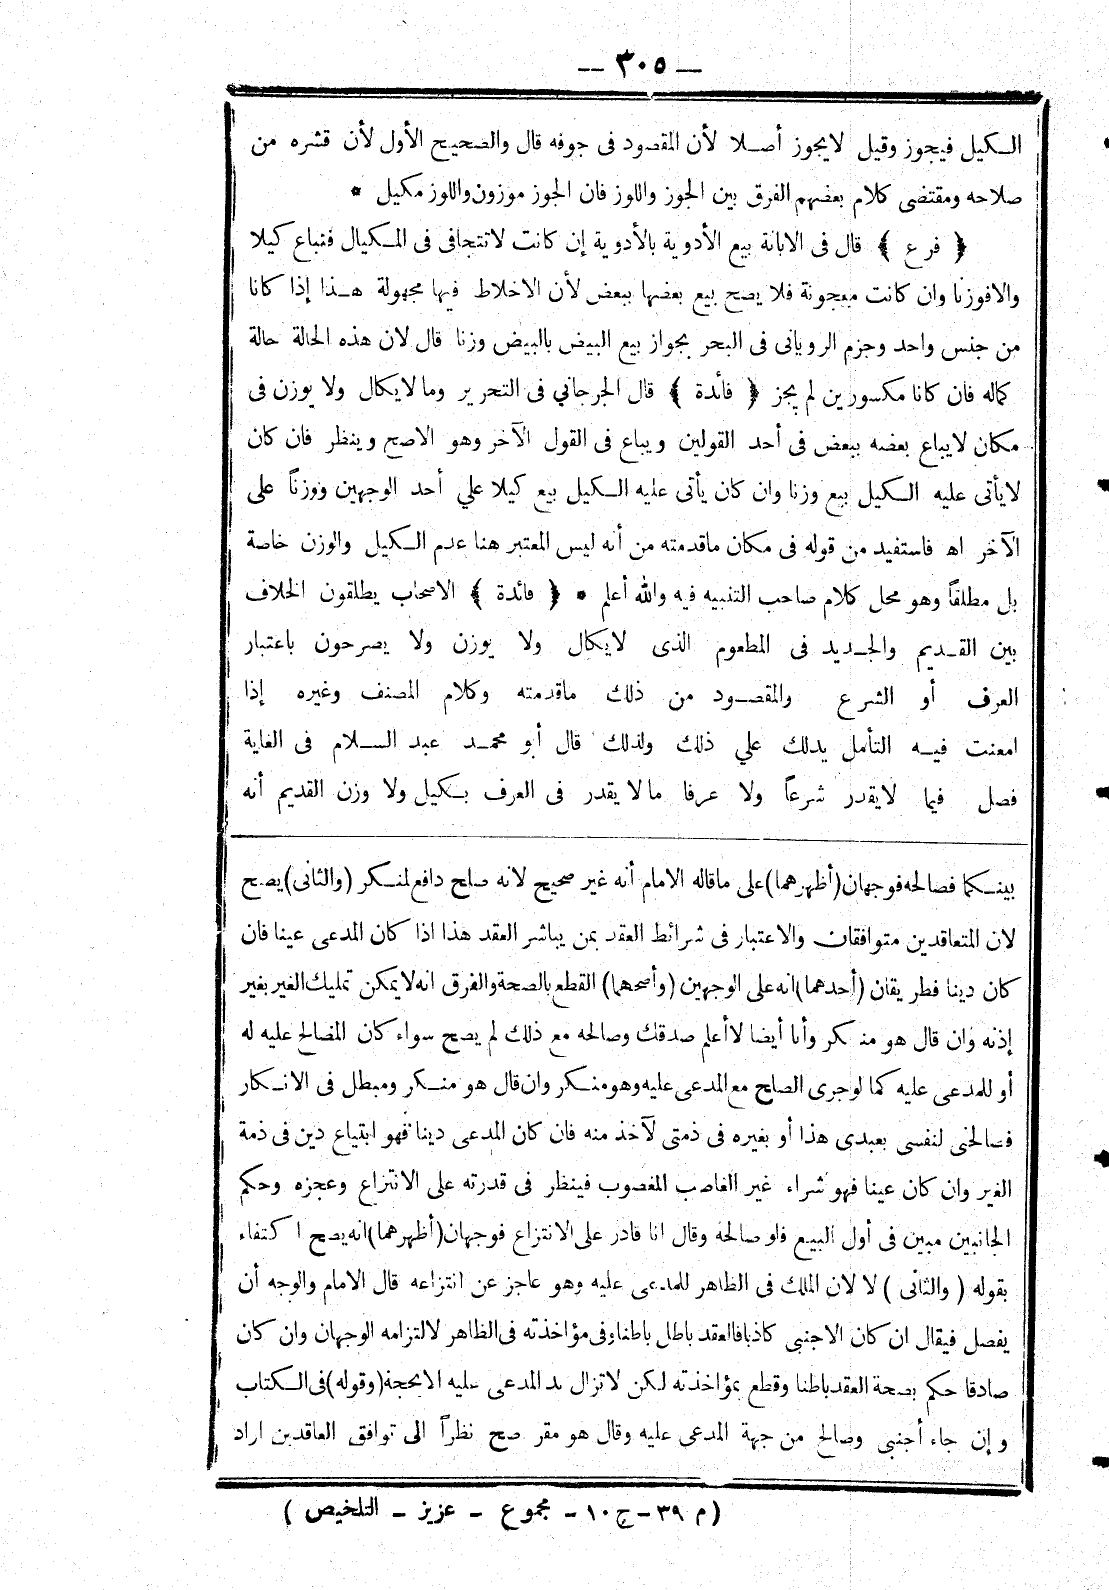 — ٣٠٥ —
الكيل فيجوز وقيل لايجوز أصلا لأن المقصود فى جوفه قال والصحيح الأول لأن قشره من
صلاحه ومقتضى كلام بعضهم الفرق بين الجوز واللوز فان الجوز موزون واللوز مكيل *
﴿ فرع ﴾ قال فى الابانة بيع الأدوية بالأدوية إن كانت لاتتجافى فى المكيال فتباع كيلا
والافوزنا وان كانت معجونة فلا يصح بيع بعضها ببعض لأن الاخلاط فيها مجهولة هذا إذا كانا
من جنس واحد وجزم الرويانى فى البحر بجواز بيع البيض بالبيض وزنا قال لان هذه الحالة حالة
كماله فان كانا مكسورين لم يجز ﴿ فائدة ﴾ قال الجرجاني فى التحرير وما لايكال ولا يوزن فى
مكان لايباع بعضه ببعض فى أحد القولين ويباع فى القول الآخر وهو الاصح وينظر فان كان
لايأتى عليه الكيل بيع وزنا وان كان يأتى عليه الكيل بيع كيلا علي أحد الوجهين ووزناً على
الآخر اه فاستفيد من قوله فى مكان ماقدمته من أنه ليس المعتبر هنا عدم الكيل والوزن خاصة
بل مطلقاً وهو محل كلام صاحب التنبيه فيه والله أعلم * ﴿ فائدة ﴾ الاصحاب يطلقون الخلاف
بين القديم والجديد فى المطعوم الذى لايكال ولا يوزن ولا يصرحون باعتبار
العرف أو الشرع والمقصود من ذلك ماقدمته وكلام المصنف وغيره إذا
امعنت فيه التأمل يدلك علي ذلك ولذلك قال أبو محمد عبد السلام فى الغاية
فصل فيما لايقدر شرعاً ولا عرفا مالا يقدر فى العرف بكيل ولا وزن القديم أنه
بينكما فصالحه فوجهان (أظهرهما) على ماقاله الامام أنه غير صحيح لانه صلح دافع لمنكر (والثانى) يصح
لان المتعاقدين متوافقان والاعتبار فى شرائط العقد بمن يباشر العقد هذا اذا كان المدعى عينا فان
كان دينا فطريقان (أحدهما) انه على الوجهين (وأصحهما) القطع بالصحة والفرق انه لايمكن تمليك الغير بغير
إذنه وان قال هو منكر وأنا أيضا لا أعلم صدقك وصالحه مع ذلك لم يصح سواء كان المصالح عليه له
أو للمدعى عليه كما لو جرى الصلح مع المدعى عليه وهو منكر وان قال هو منكر ومبطل فى الانكار
فصالحنى لنفسى بعبدى هذا أو بغيره فى ذمتى لآخذ منه فان كان المدعى دينا فهو ابتياع دين فى ذمة
الغير وان كان عينا فهو شراء غير الغاصب المغصوب فينظر فى قدرته على الانتزاع وعجزه وحكم
الجانبين مبين فى أول البيع فلو صالحه وقال انا قادر على الانتزاع فوجهان (أظهرهما) انه يصح اكتفاء
بقوله (والثانى) لا لان الملك فى الظاهر للمدعى عليه وهو عاجز عن انتزاعه قال الامام والوجه أن
يفصل فيقال ان كان الاجنبى كاذبا فالعقد باطل باطنا وفى مؤاخذته فى الظاهر لالتزامه الوجهان وان كان
صادقا حكم بصحة العقد باطنا وقطع بمؤاخذته لكن لاتزال يد المدعى عليه الابحجة (وقوله) فى الكتاب
وإن جاء أجنبى وصالح من جهة المدعى عليه وقال هو مقر صح نظراً الى توافق العاقدين اراد
(م ٣٩ – ج ١٠ – مجموع – عزيز – التلخيص)